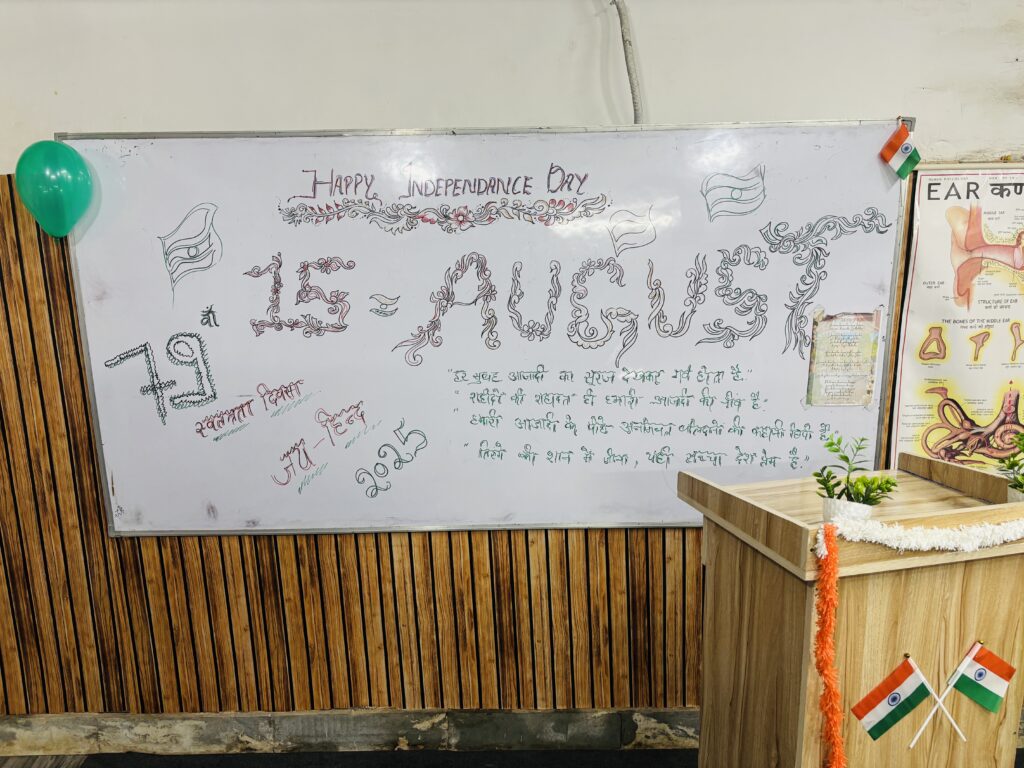 HAPPY INDEPENDANCE DAY
15 - AUGUST
79 वाँ
स्वतंत्रता दिवस
जय - हिन्द
2025
"हर सुबह आजादी का सूरज देखकर गर्व होता है."
"शहीदों की शहादत ही हमारी आजादी की नींव है."
"हमारी आजादी के पीछे अनगिनत बलिदानों की कहानी छिपी है"
"तिरंगे की शान में जीना, यही सच्चा देश प्रेम है."
EAR कण
MIDDLE EAR
OUTER EAR
STRUCTURE OF EAR
THE BONES OF THE MIDDLE EAR